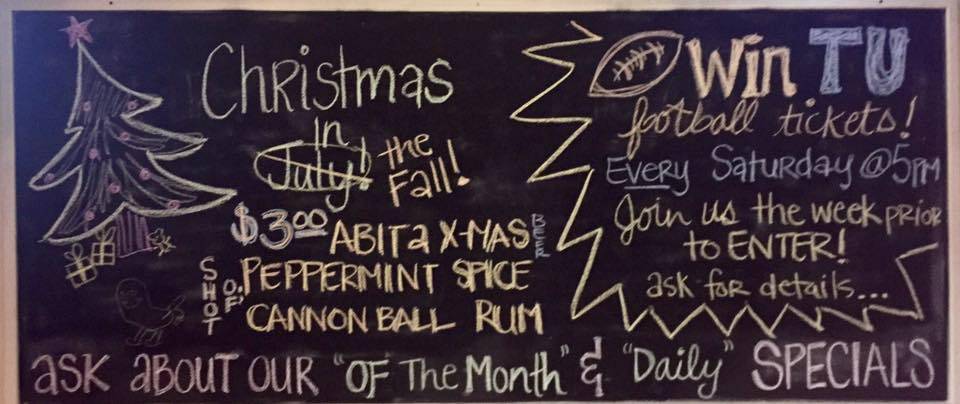 Christmas
in
July! the
Fall!
$3.00 ABITA X-MAS BEER
SHOT O.F. PEPPERMINT SPICE
CANNON BALL RUM
Win TU
football tickets!
Every Saturday @ 5pm
Join us the week prior
to ENTER!
ask for details...
ask about our "OF The Month" & "Daily" SPECIALS